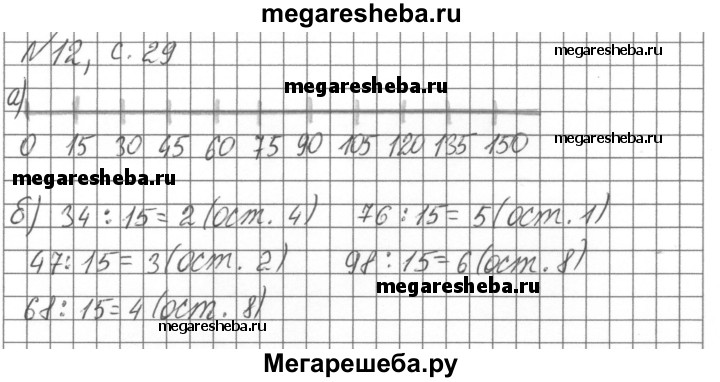 megaresheba.ru
№12, с. 29
megaresheba.ru
megaresheba.ru
а)
0 15 30 45 60 75 90 105 120 135 150
megaresheba.ru
megaresheba.ru
б) 34 : 15 = 2 (ост. 4) 76 : 15 = 5 (ост. 1)
47 : 15 = 3 (ост. 2) 98 : 15 = 6 (ост. 8)
megaresheba.ru
68 : 15 = 4 (ост. 8)
megaresheba.ru
Мегарешеба.ру